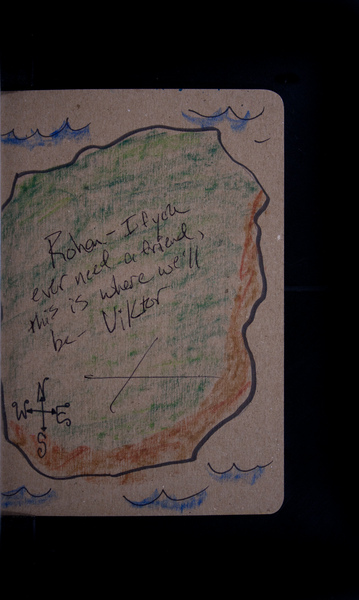 Rohan - If you
ever need a friend,
this is where we'll
be - Viktor
N
W E
S